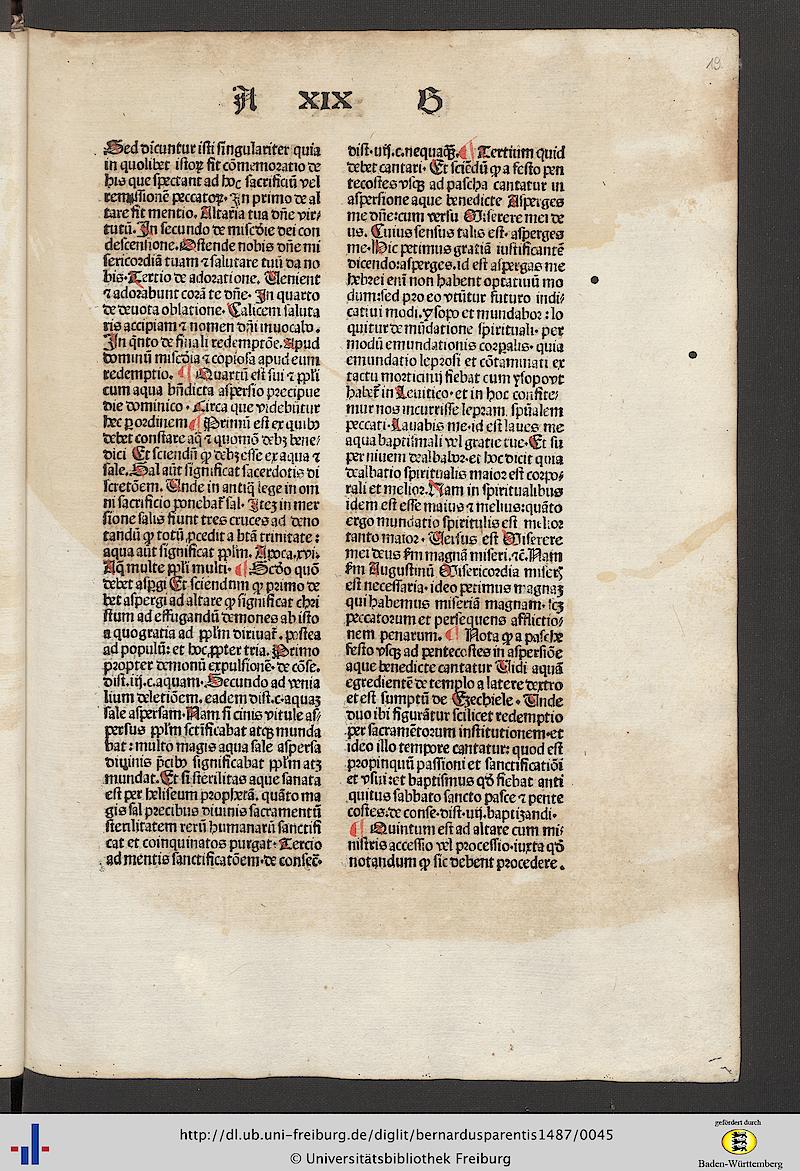 A XIX B
19
Sed dicuntur isti singulariter quia
in quolibet istoꝝ fit cõmemoratio de
his que spectant ad hoc sacrificiũ vel
remissionẽ peccatoꝝ. In primo de al
tare fit mentio. Altaria tua dñe vir⸗
tutũ. In secundo de mis&#x27;cdie dei con
descensione. Ostende nobis dñe mi
sericordiã tuam ⁊ salutare tuũ da no
bis. Tertio de adoratione. Venient
⁊ adorabunt corã te dñe. In quarto
de deuota oblatione. Calicem saluta
ris accipiam ⁊ nomen dñi inuocabo.
In qͥnto de finali redemptõe. Apud
dominũ mis&#x27;cdia ⁊ copiosa apud eum
redemptio. ¶ Quartũ est sui ⁊ ppl&#x27;i
cum aqua bñdicta aspersio precipue
die dominico. Circa que videbũtur
hec p ordinem ¶ Primũ est ex quibꝰ
debet constare aq̃ ⁊ quomõ debꝫ bene⸗
dici Et sciendũ ꝙ debꝫ esse ex aqua ⁊
sale. Sal aũt significat sacerdotis di
scretõem. Unde in antiq̃ lege in om
ni sacrificio ponebat&#x27; sal. Iteꝫ in mer
sione salis fiunt tres cruces ad deno
tandũ ꝙ totũ ꝓcedit a btã trinitate:
aqua aũt significat ppl&#x27;m. Apoca.xvi.
Aq̃ multe ppl&#x27;i multi. ¶ Scd&#x27;o quõ
debet asp̱gi Et sciendum ꝙ primo de
bet aspergi ad altare ꝙ significat chri
stum ad effugandũ demones ab isto
a quo gratia ad ppl&#x27;m diriuat&#x27;. postea
ad populũ: et hoc ꝓpter tria. Primo
propter demonũ expulsionẽ. de cõse.
dist.iij.c.aquam. Secundo ad venia
lium deletiõem. eadem dist.c.aquaꝫ
sale aspersam. Nam si cinis vitule as⸗
persus ppl&#x27;m sctificabat atqꝫ munda
bat: multo magis aqua sale aspersa
diuinis p̃cibꝰ significabat ppl&#x27;m atꝫ
mundat. Et si sterilitas aque sanata
est per heliseum prophetã. quãto ma
gis sal precibus diuinis sacramentũ
sterilitatem rerũ humanarũ sanctifi
cat et coinquinatos purgat. Tercio
ad mentis sanctificatõem. de consec̃.
dist.iiij.c.nequaq̃. ¶ Tertium quid
debet cantari. Et sciẽdũ ꝙ a festo pen
tecostes vsqꝫ ad pascha cantatur in
aspersione aque benedicte Asperges
me dñe: cum versu Miserere mei de
us. Cuius sensus talis est. asperges
me. Hic petimus gratiã iustificantẽ
dicendo: asperges. id est aspergas me
hebrei eni̇̃ non habent optatiuũ mo
dum: sed pro eo vtũtur futuro indi⸗
catiui modi. ysopo et mundabor: lo
quitur de mũdatione spirituali. per
modũ emundationis corp̱alis. quia
emundatio leprosi et cõtaminati ex
tactu morticinij fiebat cum ysopo vt
habet&#x27; in Leuitico. et in hoc confite⸗
mur nos incurrisse lepram spũalem
peccati. Lauabis me. id est laues me
aqua baptismali vel gratie tue. Et su
per niuem dealbabor. et hoc dicit quia
dealbatio spiritualis maior est corpo⸗
rali et melior. Nam in spiritualibus
idem est esse maius ⁊ melius: quãto
ergo mundatio spiritulis est melior
tanto maior. Versus est Miserere
mei deus s&#x27;m magnã miseri.⁊c̃. Nam
s&#x27;m Augustinũ Misericordia miser̃
est necessaria. ideo petimus magnaꝫ
qui habemus miseriã magnam. scꝫ
peccatorum et persequens afflictio⸗
nem penarum. ¶ Nota ꝙ a pasche
festo vsqꝫ ad pentecostes in aspersiõe
aque benedicte cantatur Vidi aquã
egredientẽ de templo a latere dextro
et est sumptũ de Ezechiele. Unde
duo ibi figurãtur scilicet redemptio
per sacramẽtorum institutionem. et
ideo illo tempore cantatur: quod est
propinquũ passioni et sanctificatiõi
et vsui: et baptismus qď fiebat anti
quitus sabbato sancto pasce ⁊ pente
costes. de conse. dist.iiij.baptizandi.
¶ Quintum est ad altare cum mi⸗
nistris accessio vel processio. iuxta qď
notandum ꝙ sic debent procedere.
http://dl.ub.uni-freiburg.de/diglit/bernardusparentis1487/0045
© Universitätsbibliothek Freiburg
gefördert durch
Baden-Württemberg